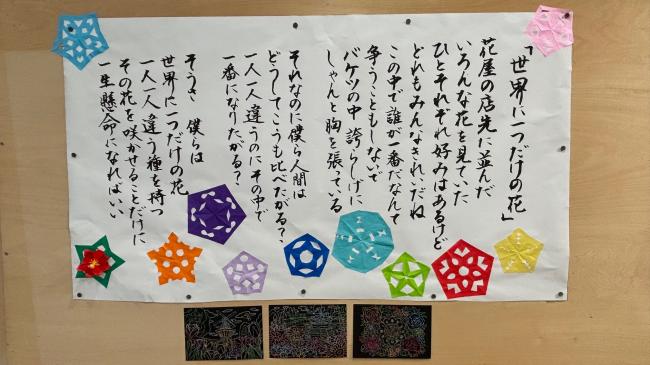 「世界に一つだけの花」
花屋の店先に並んだ
いろんな花を見ていた
ひとそれぞれ好みはあるけど
どれもみんなきれいだね
この中で誰が一番だなんて
争うこともしないで
バケツの中 誇らしげに
しゃんと胸を張っている
それなのに僕ら人間は
どうしてこうも比べたがる?
一人一人違うのにその中で
一番になりたがる?
そうさ 僕らは
世界に一つだけの花
一人一人違う種を持つ
その花を咲かせることだけに
一生懸命になればいい